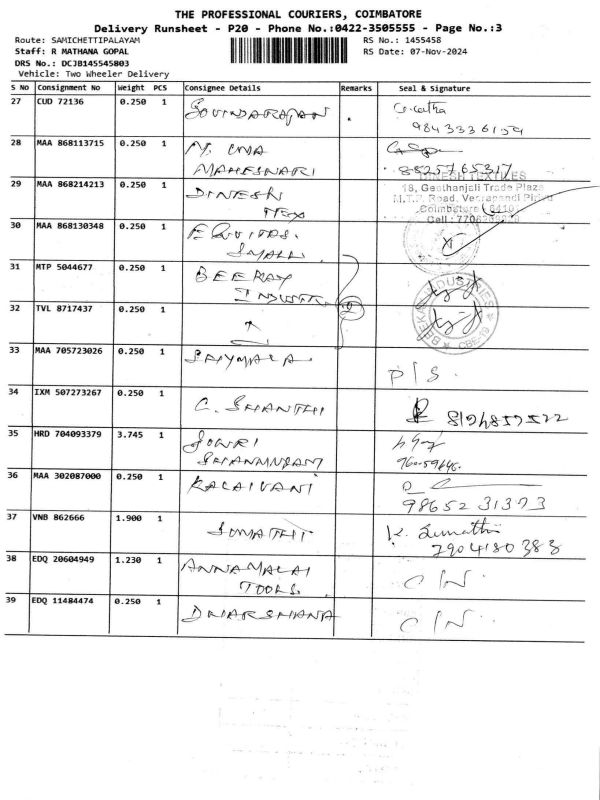 THE PROFESSIONAL COURIERS, COIMBATORE
Delivery Runsheet - P20 - Phone No.:0422-3505555 - Page No.:3
Route: SAMICHETTIPALAYAM RS No.: 1455458
Staff: R MATHANA GOPAL RS Date: 07-Nov-2024
DRS No.: DCJB145545803
Vehicle: Two Wheeler Delivery
S No Consignment No Weight PCS Consignee Details Remarks Seal & Signature
27 CUD 72136 0.250 1 GOVINDARAJAN
9843336159
28 MAA 868113715 0.250 1 N. UMA
MAHESWARI 8825765317
29 MAA 868214213 0.250 1 DINESH
TEX
DINESH TEXTILES
18, Geethanjali Trade Plaza
M.T.P. Road, Veerapandi
Coimbatore
Cell :
30 MAA 868130348 0.250 1 EQUITAS.
SMALL
31 MTP 5044677 0.250 1 BEEKAY
INDUSTR
32 TVL 8717437 0.250 1 2
INDUSTRIES
33 MAA 705723026 0.250 1 SHYMALA P/S.
34 IXM 507273267 0.250 1 C. SHANTHI
35 HRD 704093379 3.745 1 GOWRI
SHANMUGAM
36 MAA 302087000 0.250 1 KALAIVANI
9865231373
37 VNB 862666 1.900 1 SUMATHI K. Sumathi
7904180388
38 EDQ 20604949 1.230 1 ANNAMALAI
TOOLS. C/N.
39 EDQ 11484474 0.250 1 DHARSHANA C/N.